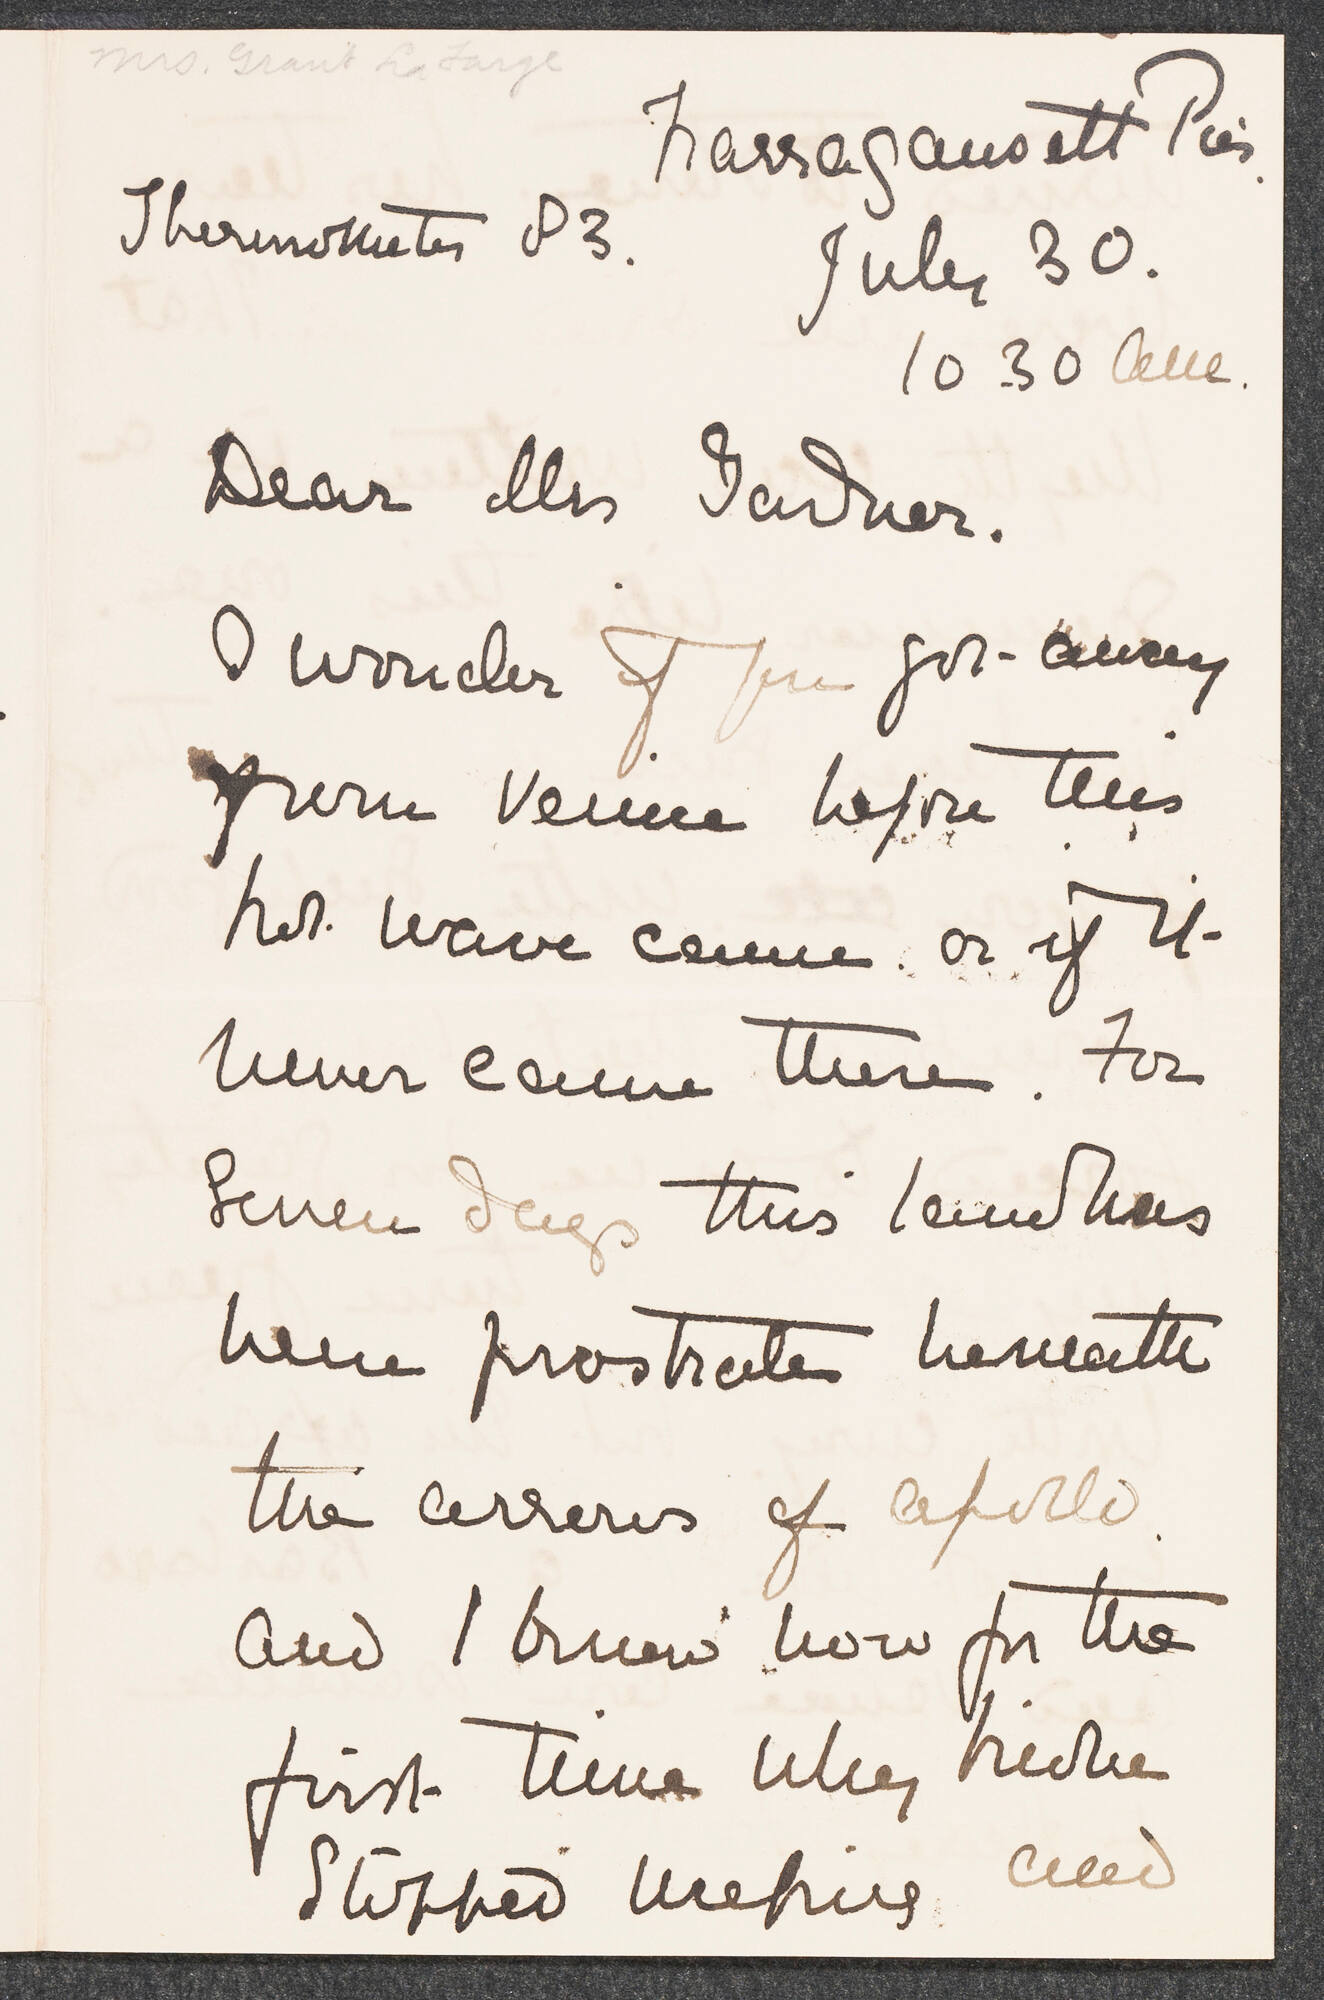 Mrs. Grant La Farge
Narragansett Pier.
Thermometer 83.
July 30.
10.30 am.
Dear Mrs Gardner.
I wonder if you got away
from Venice before this
hot wave came. or if it
never came there. For
Seven days this land has
been prostrate beneath
the arrows of apollo.
and I know now for the
first time why Niobe
Stopped weeping and